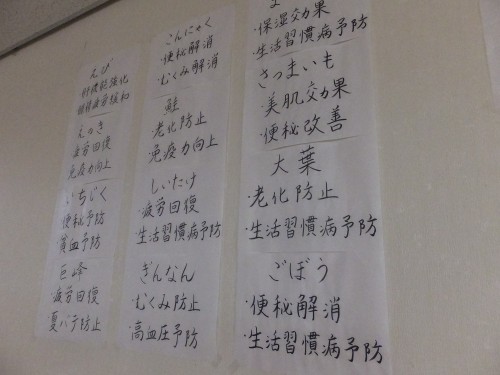 えび
肝機能強化
眼精疲労緩和
えのき
疲労回復
免疫力向上
いちじく
便秘予防
貧血予防
巨峰
疲労回復
夏バテ防止
こんにゃく
・便秘解消
・むくみ解消
鮭
・老化防止
・免疫力向上
しいたけ
・疲労回復
・生活習慣病予防
ぎんなん
・むくみ防止
・高血圧予防
・保湿効果
・生活習慣病予防
さつまいも
・美肌効果
・便秘改善
大葉
・老化防止
・生活習慣病予防
ごぼう
・便秘解消
・生活習慣病予防